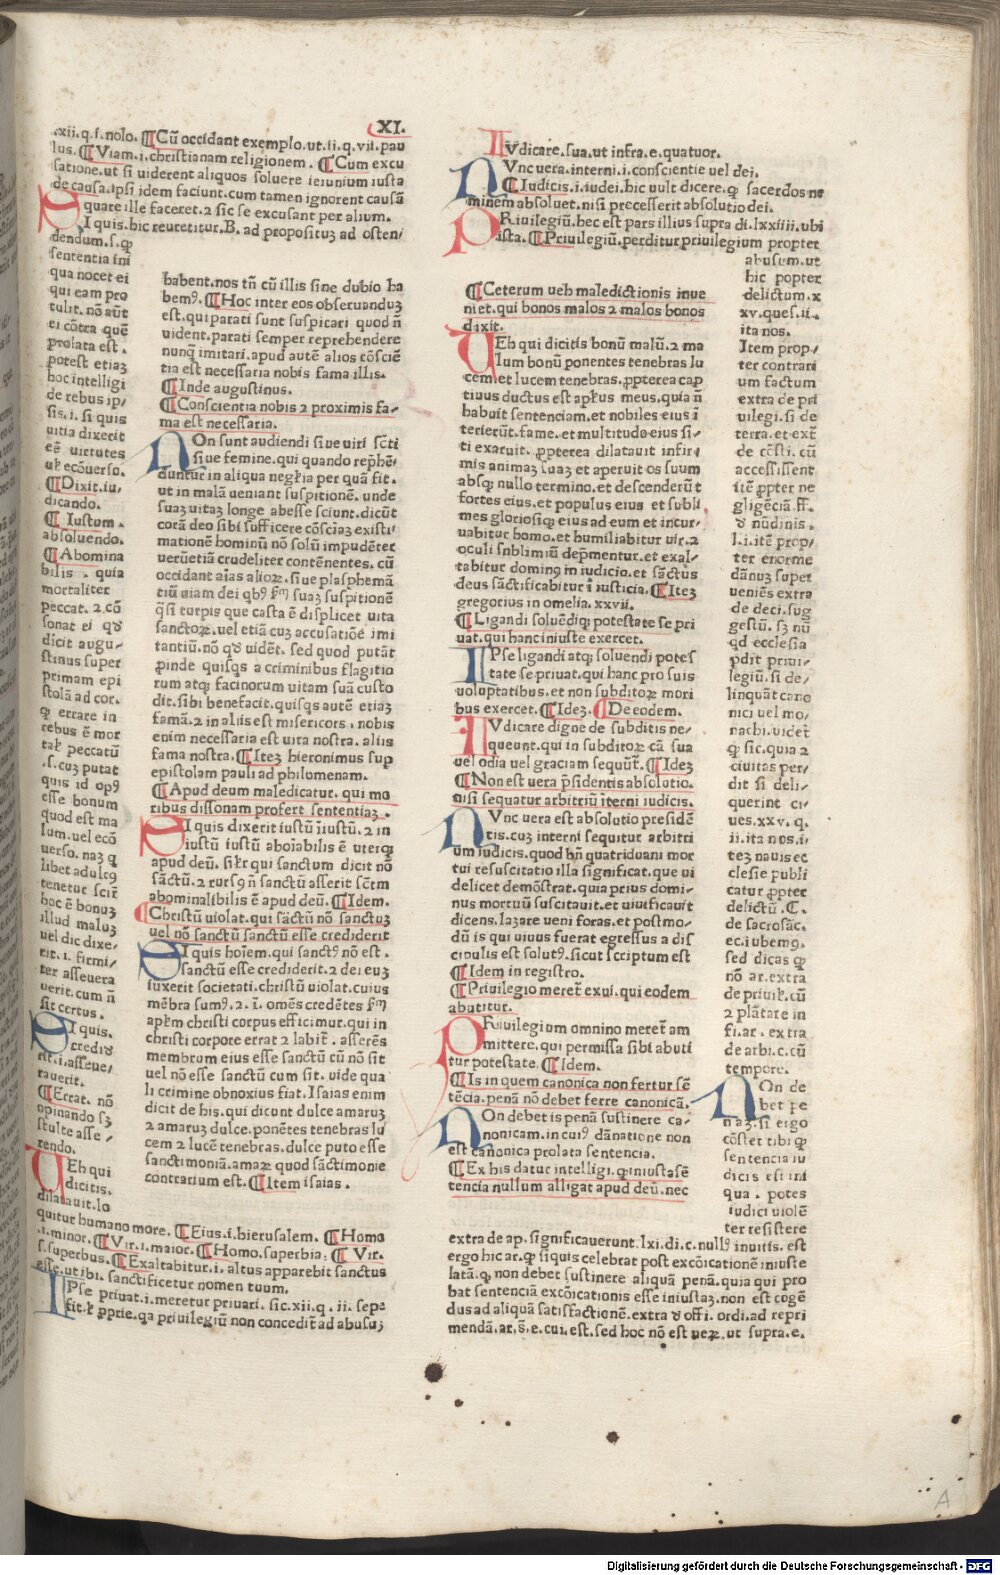 XI.
.xii.q.i.nolo. ¶Cū occidant exemplo.ut.ii.q.vii.pau
lus. ¶Viam.i.christianam religionem. ¶Cum excu
satione.ut si uiderent aliquos soluere ieiunium iusta
de causa.ipsi idem faciunt.cum tamen ignorent causā
quare ille faceret.2 sic se excusant per alium.
SI quis.hic reuertitur.B. ad propositus ad osten/
dendum.s.ꝙ
sententia ini
qua nocet ei
qui eam pro
tulit. nō aūt
ei cōtra quē
prolata est.
potest etiaʒ
hoc intelligi
de rebus ip/
sis.i. si quis
uitia dixerit
eē uirtutes
uł ecōuerso.
¶Dixit.iu/
dicando.
¶Iustum.
absoluendo.
¶Abomina
bilis. quia
mortaliter
peccat. 2 cō
sonat ei qđ
dicit augu/
stinus super
primam epi
stolā ad cor.
ꝙ errare in
rebus ē mor
tałe peccatū
.s. cuʒ putat
quis id opꝰ
esse bonum
quod est ma
lum.uel ecō
uerso. naʒ ꝗ
libet adulcꝰ
tenetur scir̄
hoc ē bonuʒ
illud maluʒ
uel dic dixe/
rit. i. firmi/
ter asseuera
uerit.cum n̄
sit certus.
SI quis.
crediđ
est.i.asseue/
rauerit.
¶Errat. nō
opinando sʒ
stulte asse/
rendo.
UEh qui
dicitis.
dilatauit.lo
quitur humano more. ¶Eius.i.hierusalem. ¶Homo
.i.minor. ¶Vir.i.maior. ¶Homo.superbia. ¶Vir.
s.superbus. ¶Exaltabitur.i.altus apparebit sanctus
esse.ut ibi. sanctificetur nomen tuum.
IPse priuat.i.meretur priuari. sic.xii.q.ii. sepe
fit.ł ꝓprie.qa priuilegiū non conceditr̄ ad abusuʒ
habent.nos tn̄ cū illis sine dubio ha
bemꝰ. ¶Hoc inter eos obseruanduʒ
est.qui parati sunt suspicari quod n̄
uident.parati semper reprehendere
nunꝗ imitari.apud autē alios cōsciē
tia est necessaria nobis fama illis.
¶Inde augustinus.
¶Conscientia nobis 2 proximis fa/
ma est necessaria.
NOn sunt audiendi siue uiri scti
siue femine.qui quando rephē/
duntur in aliqua negłia per quā fit.
ut in malā ueniant suspitionē. unde
suaʒ uitaʒ longe abesse sciunt.dicūt
corā deo sibi sufficere cōsciaʒ existi/
mationē hominū nō solū impudēter
ueruētiā crudeliter contēnentes. cū
occidant aīas alioꝝ. siue plasphemā
tiū uiam dei qbꝰ fm suaʒ suspitionē
ꝗsi turpis que casta ē displicet uita
sanctoꝝ.uel etiā cuʒ accusatiōē imi
tantiū.nō qđ uidēt. sed quod putāt
ꝓinde quisꝗs a criminibus flagitio
rum atqʒ facinorum uitam suā custo
dit.sibi benefacit.quisꝗs autē etiaʒ
famā.2 in aliis est misericors. nobis
enim necessaria est uita nostra. aliis
fama nostra. ¶Iteʒ hieronimus sup
epistolam pauli ad philomenam.
¶Apud deum maledicatur. qui mo
ribus dissonam profert sententiaʒ.
SI quis dixerit iustū iiustū. 2 in
iustū iustū aboiabilis ē uterqʒ
apud deū. siłr qui sanctum dicit nō
sāctū.2 rursꝰ n̄ sanctū asserit sctm
abominalibilis ē apud deū. ¶Idem.
¶Christū uiolat.qui sāctū nō sanctuʒ
uel nō sanctū sanctū esse crediderit
SI quis hoīem.qui sanctꝰ nō est.
sanctū esse crediderit.2 dei euʒ
iuxerit societati.christū uiolat.cuius
mēbra sumꝰ. 2.ī. omēs credētes fm
apłm christi corpus efficimur.qui in
christi corpore errat 2 labit. asserēs
membrum eius esse sanctū cū nō sit
uel nō esse sanctū cum sit. uide qua
li crimine obnoxius fiat.Isaias enim
dicit de his.qui dicunt dulce amaruʒ
2 amaruʒ dulce.ponētes tenebras lu
cem 2 lucē tenebras.dulce puto esse
sanctimoniā.amaꝝ quod sāctimonie
contrarium est. ¶Item isaias.
IVdicare.sua.ut infra.e.quatuor.
NVnc uera.interni.i.conscientie uel dei.
¶Iudicis.i.iudei.hic uult dicere.ꝙ sacerdos ne
minem absoluet.nisi preccesserit absolutio dei.
PRiuilegiū.hec est pars illius supra di.lxxiiii.ubi
ista. ¶Priuilegiū.perditur priuilegium propter
abusum.ut
hic popter
delictum.x
xv.ques.ii.
ita nos.
Item prop/
ter contrari
um factum
extra de pri
uilegi.si de
terra.et.ext̄
de cōsti. cū
accessissent
itē ꝓpter ne
gligēciā.ff.
đ nūdinis.
l.i.itē prop/
ter enorme
dānuʒ super
ueniēs extra
de deci.sug
gestū. sʒ nū
qd ecclesia
ꝑdit priui/
legiū.si de/
linquāt cano
nici uel mo/
nachi.uidet̄
ꝙ sic.quia 2
ciuitas per/
dit si deli/
querint ci/
ues.xxv.q.
ii.ita nos.i/
teʒ nauis ec
clesie publi
catur ꝓpter
delictū.C.
de sacrosāc.
ec.iubemꝰ.
sed dicas ꝙ
nō ar.extra
de priuił.cū
2 plātare in
fi.ar. extra
de arbi.c.cū
tempore.
NOn de
bet pe
naʒ.si ergo
cōstet tibi ꝙ
sententia iu
dicis est ini
qua. potes
iudici uiolē
ter resistere
¶Ceterum ueh maledictionis inue
niet.qui bonos malos 2 malos bonos
dixit.
UEh qui dicitis bonū malū.2 ma
lum bonū ponentes tenebras lu
cem et lucem tenebras.ꝓpterea cap
tiuus ductus est apłus meus.quia n̄
habuit sentenciam.et nobiles eius ī
terierūt.fame.et multitudo eius si/
ti exaruit. ꝓpterea dilatauit infir
mis animaʒ suaʒ et aperuit os suum
absqʒ nullo termino.et descenderūt
fortes eius.et populus eius et subli
mes gloriosiqʒ eius ad eum et incur/
uabitur homo.et humiliabitur uir.2
oculi snblimiū dep̄mentur.et exal/
tabitur dominꝰ in iudicio.et sāctus
deus sāctificabitur ī iusticia. ¶Iteʒ
gregorius in omelia.xxvii.
¶Ligandi soluēdiqʒ potestate se pri
uat.qui hanc iniuste exercet.
IPse ligandi atqʒ soluendi potes
tate se priuat.qui hanc pro suis
uoluptatibus.et non subditoꝝ mori
bus exercet. ¶Ideʒ. ¶De eodem.
IVdicare digne de subditis ne/
queunt.qui in subditoꝝ cā sua
uel odia uel graciam sequūt̄. ¶Ideʒ
¶Non est uera p̄sidentis absolutio.
nisi sequatur arbitriū iterni iudicis.
NVnc uera est absolutio presidē
tis.cuʒ interni sequitur arbitri
um iudicis.quod bn̄ quatriduani mor
tui resuscitatio illa significat.que ui
delicet demōstrat.quia prius domi/
nus mortuū suscitauit.et uiuificauit
dicens.lazare ueni foras.et postmo/
dū is qui uiuus fuerat egressus a dis
cipulis est solutꝰ.sicut scriptum est
¶Idem in registro.
¶Priuilegio meret̄ exui.qui eodem
abutitur.
PRiuilegium omnino meret̄ am
mittere.qui permissa sibi abuti
tur potestate. ¶Idem.
¶Is in quem canonica non fertur sē
tēcia.penā nō debet ferre canonicā.
NOn debet is penā sustinere ca/
nonicam.in cuiꝰ dānatione non
est canonica prolata sentencia.
¶Ex his datur intelligi.ꝙ iniusta sē
tencia nullum alligat apud deū.nec
extra de ap. significauerunt.lxi.di.c.nullꝰ inuitis. est
ergo hic ar.ꝙ si quis celebrat post excōicationē iniuste
latā.ꝙ non debet sustinere aliquā penā.quia qui pro
bat sentenciā excōicationis esse iniustaʒ.non est cogē
dus ad aliquā satisfactionē.extra đ offi. ordi.ad repri
mendā.ar.s̄.e.cui.est.sed hoc nō est ueꝝ.ut supra.e.
A
Digitalisierung gefördert durch die Deutsche Forschungsgemeinschaft - DFG